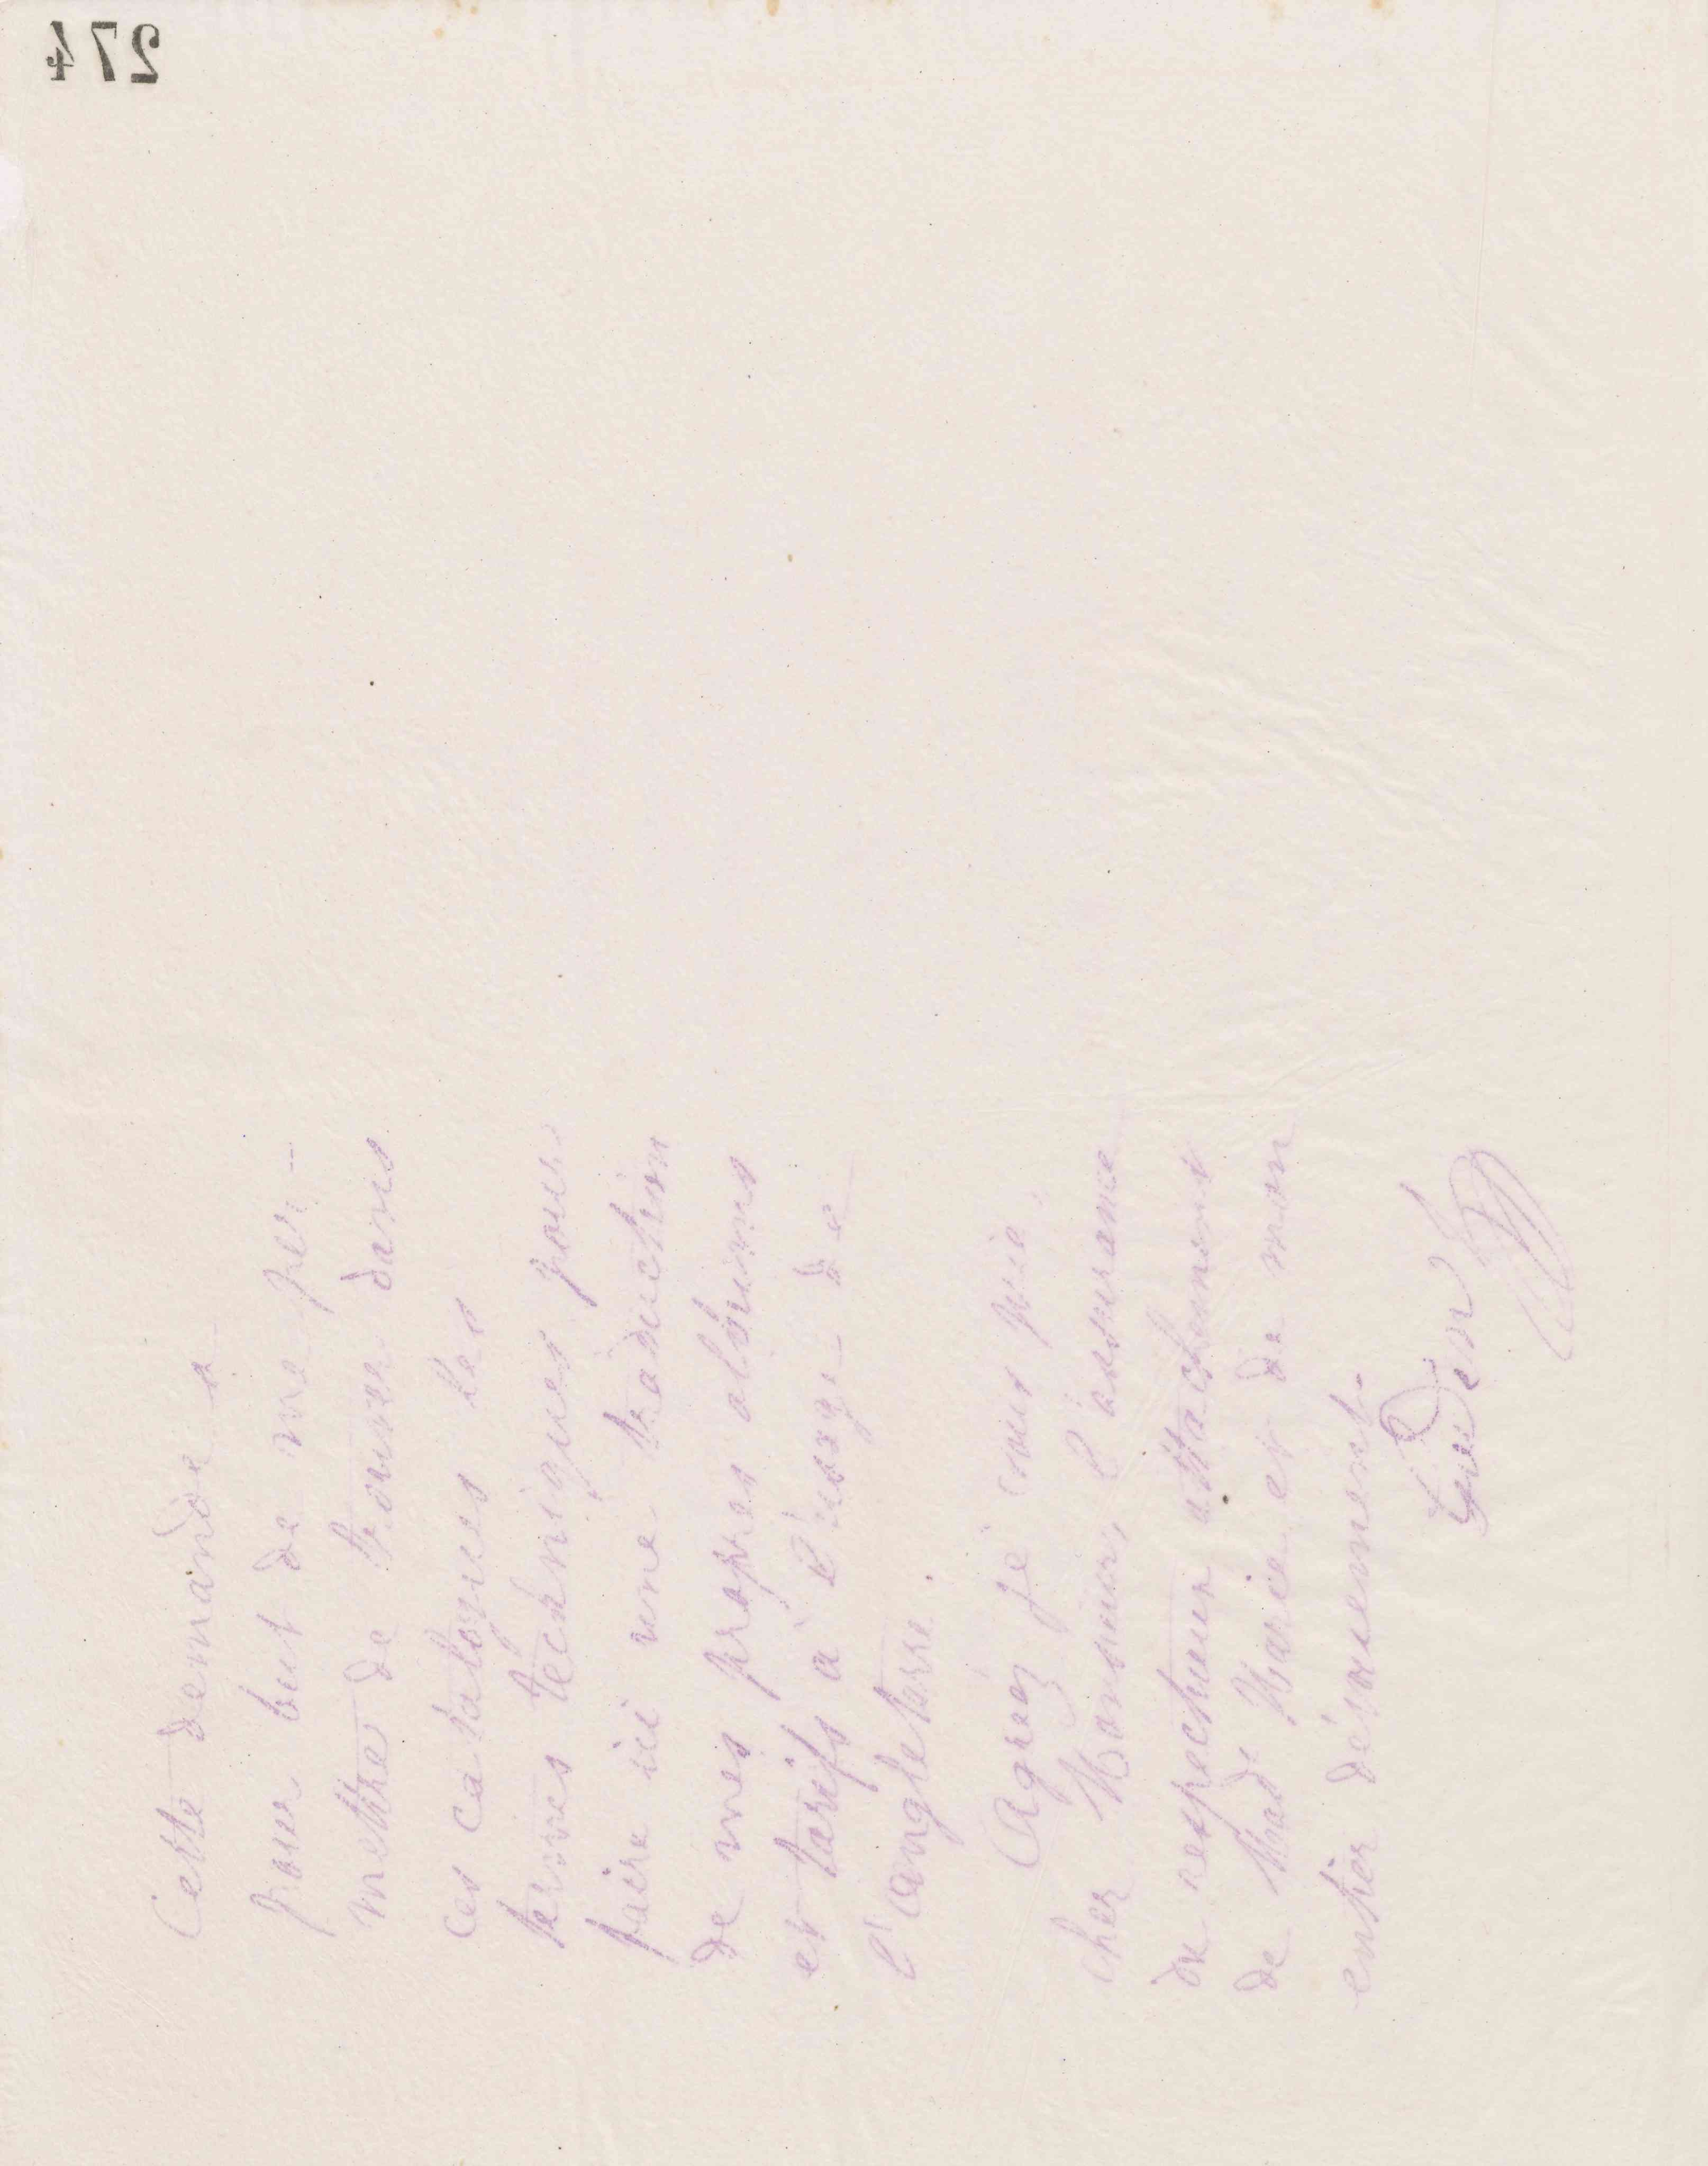 274
Cette demande a
pour but de me per-
mettre de trouver dans
ces catalogues les
termes techniques pour
faire ici une traduction
de mes propres albums
et tarifs à l'usage de
l'angleterre.
Agréez je vous prie,
cher Monsieur, l'assurance
du respectueux attachement
de Mad.e Marie et de mon
entier dévouement.
Godin